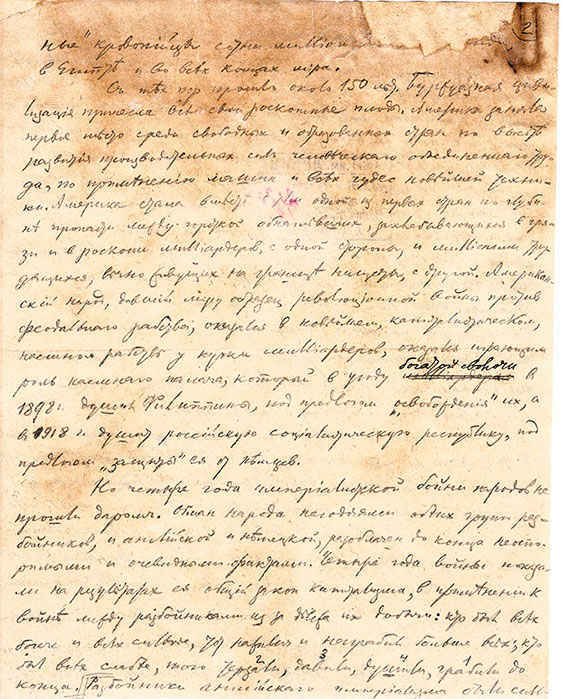 2
ные" кровопійцы сотни милліон
в Египтѣ и во всѣх концах міра.
С тѣх пор прошло около 150 лѣт. Буржуазная циви-
лизація принесла всѣ свои роскошные плоды. Америка заняла
первое мѣсто среди свободных и образованных стран по высотѣ
развитія производительных сил человѣческаго объединеннаго тру-
да, по примѣненію машин и всѣх чудес новѣйшей техни-
ки. Америка стала вмѣстѣ с тѣм одной из первых стран по глуби-
нѣ пропасти между горсткой обнаглѣвших, захлебывающихся в гря-
зи и в роскоши милліардеров, с одной стороны, и милліонами тру-
дящихся, вѣчно живущих на границѣ нищеты, с другой. Американ-
скій народ, давшій міру образец революціонной войны против
феодальнаго рабства, оказался в новѣйшем, капиталистическом,
наемном рабствѣ у кучки милліардеров, оказался играющим
роль наемнаго палача, который в угоду богатой сволочи в
1898 г. душил Филиппины, под предлогом "освобожденія" их, а
в 1918 г. душит россійскую соціалистическую республику, под
предлогом "защиты" ея от нѣмцев.
Но четыре года имперіалистской бойни народов не
прошли даром. Обман народа негодяями обѣих групп раз-
бойников, и англійской и нѣмецкой, разоблачен до конца неоспо-
римыми и очевидными фактами. Четыре года войны показа-
ли на результатах ея общій закон капитализма, в примѣненіи к
войнѣ между разбойниками из за дѣлежа их добычи: кто был всѣх
богаче и всѣх сильнѣе, тот нажил и награбил больше всѣх; кто
был всѣх слабѣе, того терзали, давили, душили, грабили до
конца. Разбойники англійскаго имперіализма были